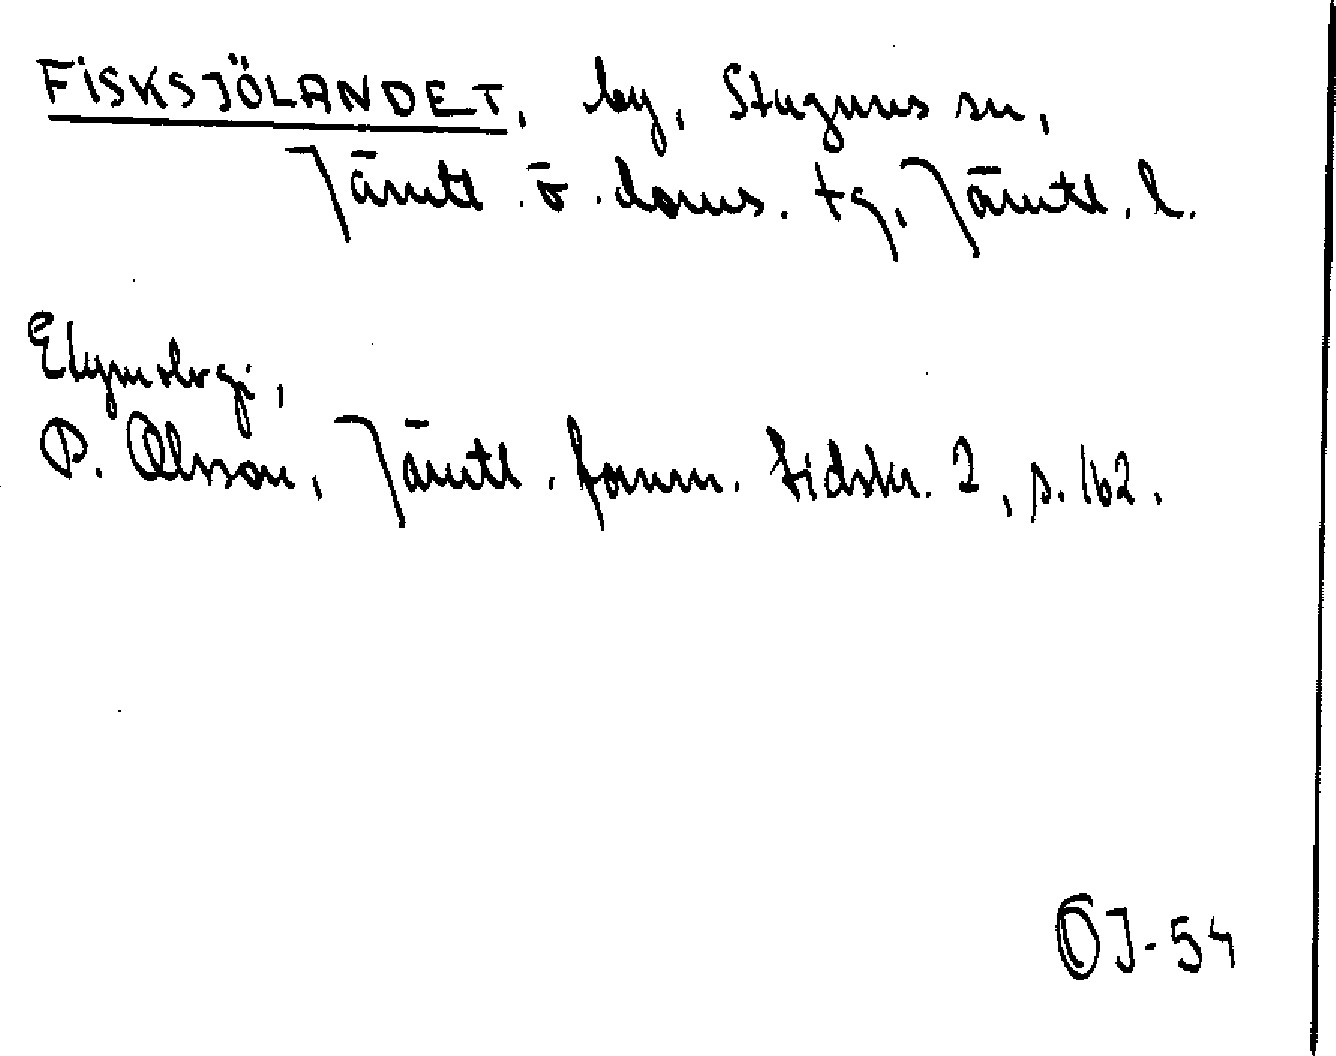 FISKSJÖLANDET, by, Stuguns sn,
Jämtl. ö. doms. tg, Jämtl. l.
Etymologi,
P. Olsson, Jämtl. fornm. tidskr. 2, s. 162.
OJ-54